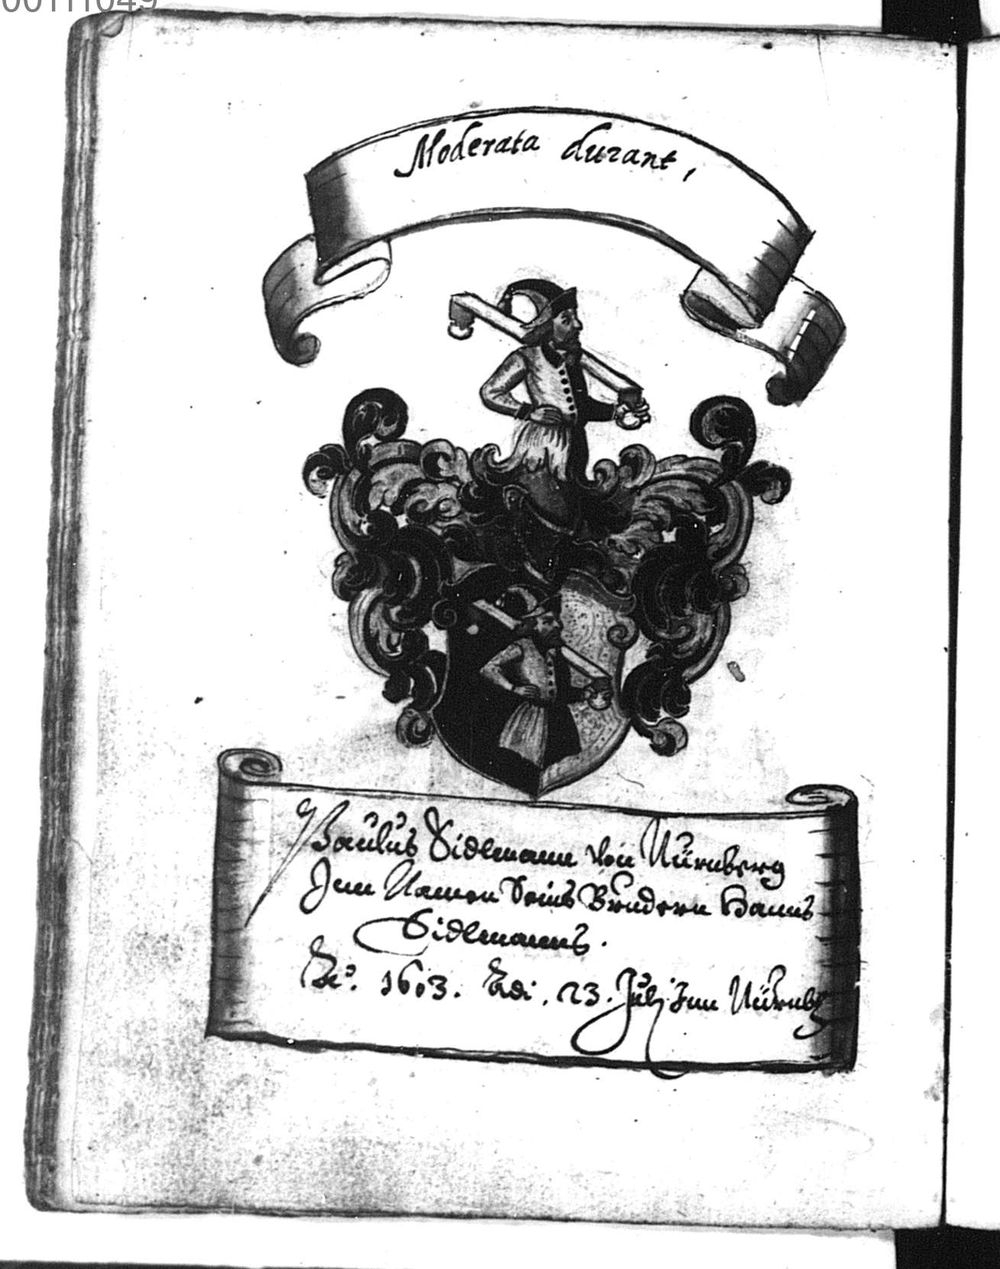 00111049
Moderata durant,
Paulus Sidlmann von Nürnberg
Inn Namen Seins Brudern Hanns
Sidlmanns.
Ao. 1603. Adi. 23. Julj Inn Nürnbg